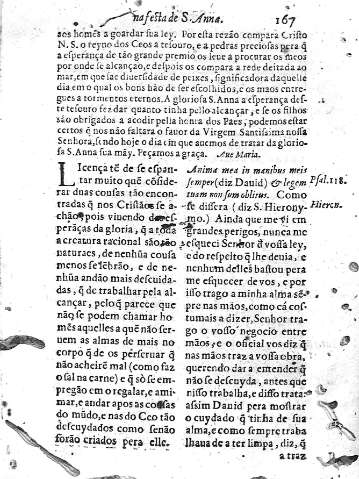 na festa de S. Anna. 167
aos homẽs a goardar sua ley. Por esta rezão compara Cristo
N. S. o reyno dos Ceos a tesouro, e a pedras preciosas pera q̃
a esperança de tão grande premio os leue a procurar os meos
por onde se alcanção, e despois os compara a rede deitada ao
mar, em que se faz diuersidade de peixes, significadora daquelle
dia em o qual os bõns hão de ser escolhidos, e os maos entre-
gues a tormentos eternos. A gloriosa S. Anna a esperança des-
te tesouro fez dar quanto tinha pello alcançar, e se os filhos
são obrigados a acodir pella honra dos Paes, podemos estar
certos q̃ nos não faltara o fauor da Virgem Santissima nossa
Senhora, sendo hoje o dia em que auemos de tratar da glorio-
sa S. Anna sua mãy. Peçamos a graça. Aue Maria.
LIcença tẽ de se espan-
tar muito quẽ cõside-
rar duas cousas tão encon-
tradas q̃ nos Cristãos se a-
chão, pois viuendo de es-
perãças da gloria, q̃ a toda
a creatura racional são tão
naturaes, de nenhũa cousa
menos se lẽbrão, e de ne-
nhũa andão mais descuida-
das, q̃ de trabalhar pela al-
cançar, pelo q̃ parece que
nãq se podem chamar ho-
mẽs aquelles a quẽ não ser-
uem as almas de mais no
corpo q̃ de os perseruar q̃
não acheirẽ mal (como faz
o sal na carne) e q̃ sò se em-
pregão em o regalar, e ami-
mar, e andar apos as cousas
do mũdo, e nas do Ceo tão
descuydados como senão
forão criados pera elle.
Anima mea in manibus meis
semper (diz Dauid) & legem
tuam non sum oblitus. Como
se dissera (diz S. Hierony-
mo.) Ainda que me vi em
grandes perigos, nunca me
esqueci Senhor d vossa ley,
e do respeito q̃ lhe deuia, e
nenhum delles bastou pera
me esquecer de vos, e por
isso trago a minha alma sẽ-
pre nas mãos, como cá cos-
tumais a dizer, Senhor tra-
go o vosso negocio entre
mãos, e o official vos diz q̃
nas mãos traz a vossa obra,
querendo dar a entender q̃
não se descuyda, antes que
nisso trabalha, e disso trata:
assim Dauid pera mostrar
o cuydado q̃ tinha de sua
alma, e como sempre traba
lhaua de a ter limpa, diz, q̃
a traz
Psal. 118.
Hieron.